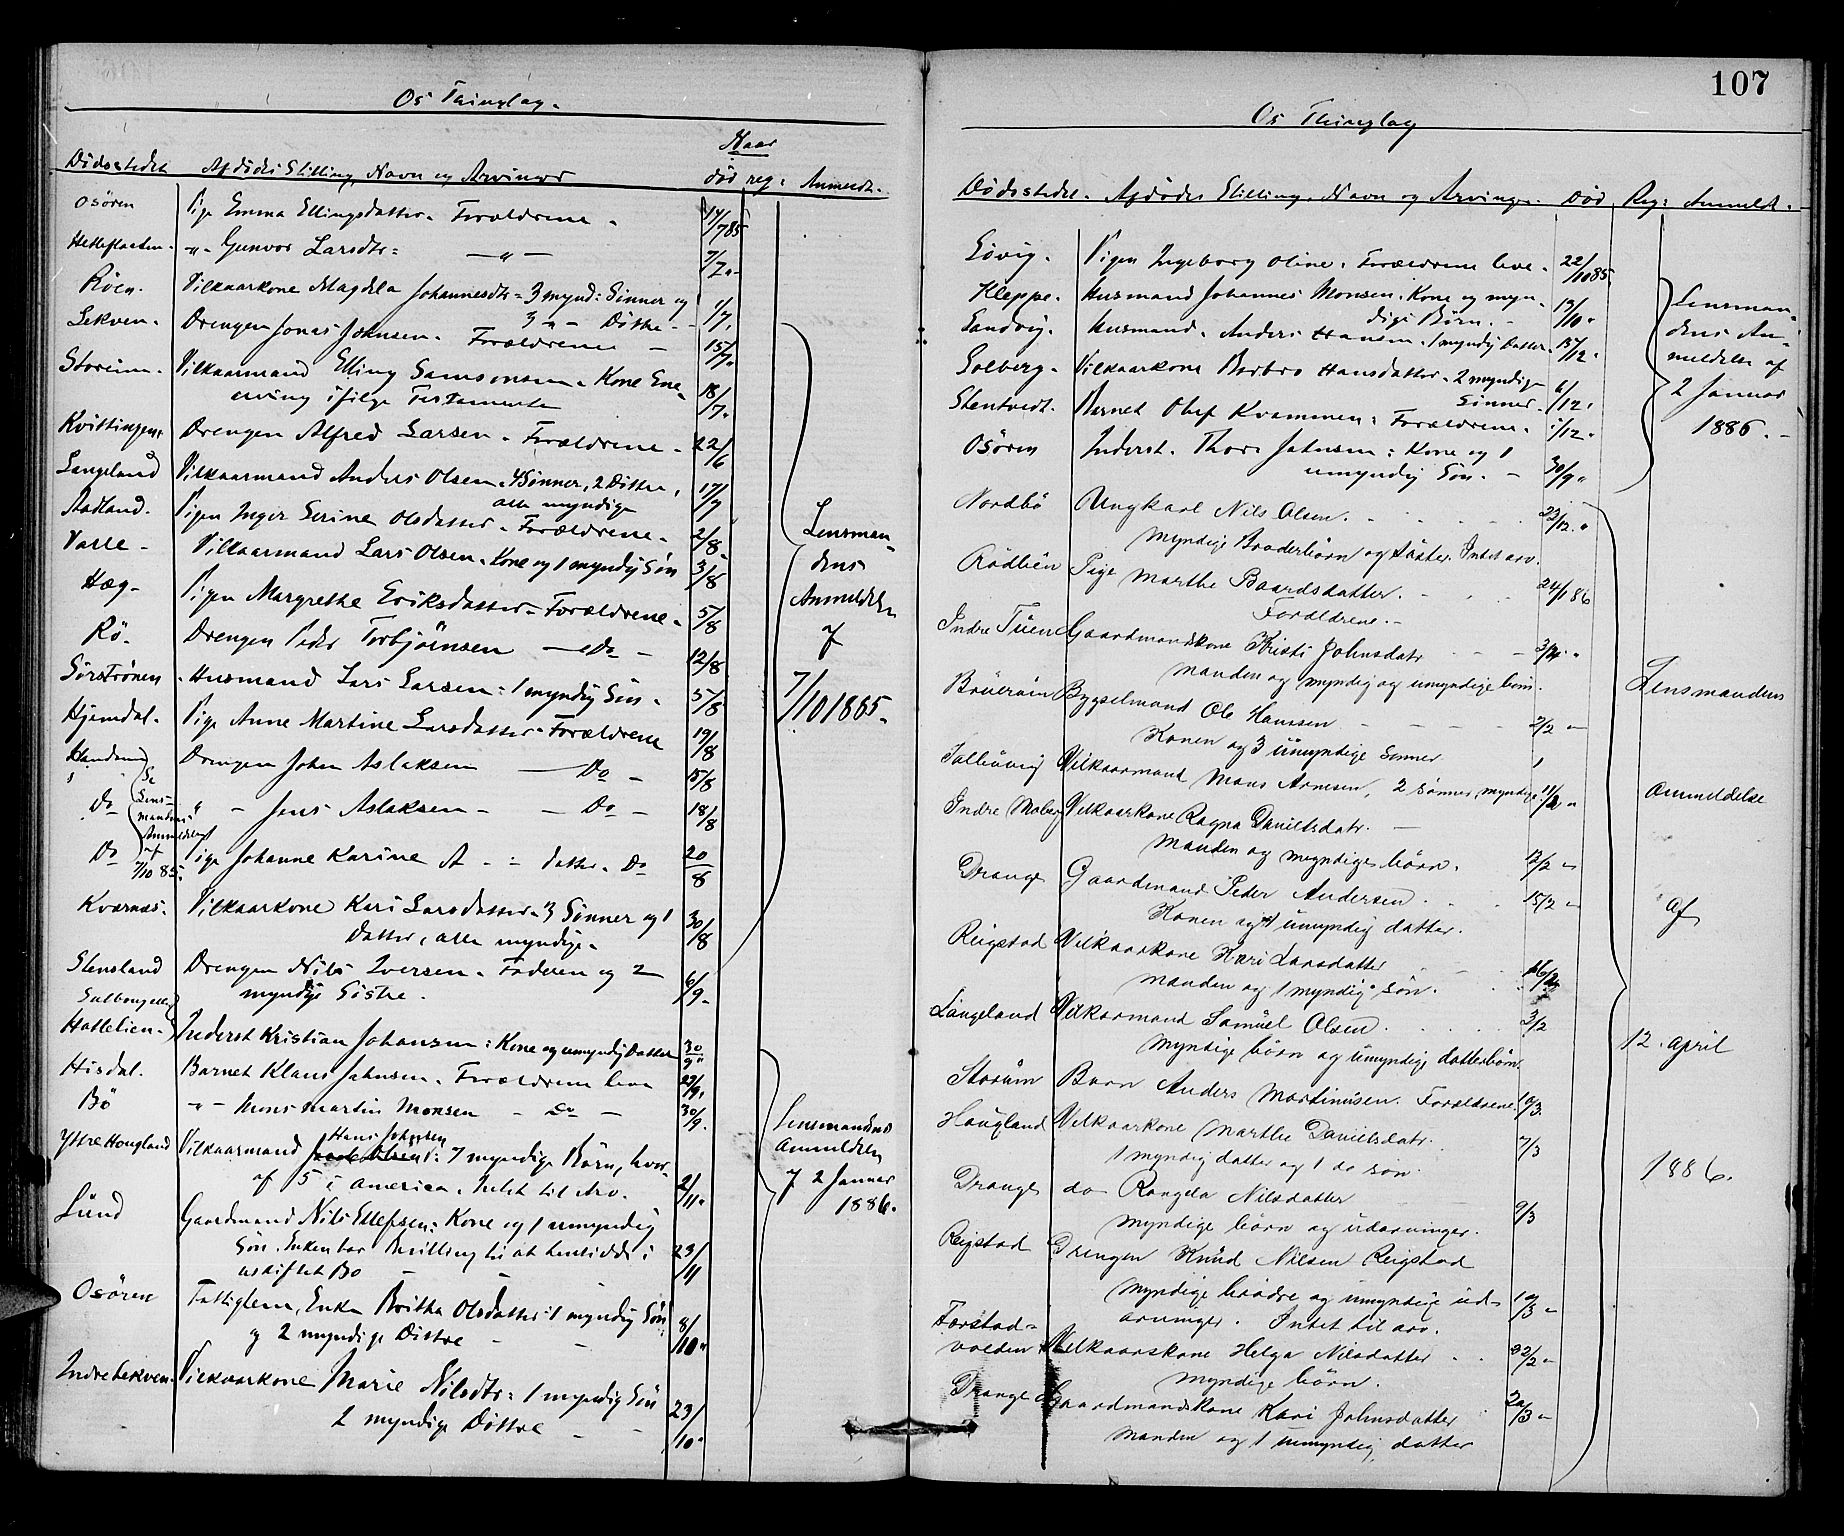 Os Thinglag.
Naar
Dødsstedet Afdødes Stilling, Navn og Arvinger død reg: Anmeldt.
Osören Pige Emma Ellingsdatter. Forældrene. 17/7 85
-"- Gunvor Larsdtr: -"- 7/7 "
Röen. Vilkaarkone Magdela Johannesdtr: 3 mynd: Sönner og
3 -"- Döttre 1/7.
Lekven. Drengen Jonas Johnsen. Forældrene 15/7.
Storeim. Vilkaarmand Elling Samsonsen. Kone Ene
arving ifölge Testamente 18/7.
Kvittingen. Drengen Alfred Larsen. Forældrene. 22/6
Langeland Vilkaarmand Anders Olsen. 4 Sönner, 2 Döttre,
alle myndige 17/7
Aadland. Pigen Inger Serine Olsdatter. Forældrene. 2/8.
Valle. Vilkaarmand Lars Olsen. Kone og 1 myndig Sön 3/8
Hæg. Pigen Margrethe Eriksdatter. Forældrene. 5/8
Rö. Drengen Peder Torbjörnsen Do 12/8
Sörströnen Husmand Lars Larsen: 1 myndig Sön. 5/8
Hjemdal. Pige Anne Martine Larsdatter. Forældrene 19/8
Drengen John Aslaksen Do 15/8
Do " - Jens Aslaksen - Do - 18/8
Do Pige Johanne Karine A - : datter. Do 20/8
Se
Lens-
mandens
Anmeldelse
af
7/10 85.
Lensman-
dens
Anmeldelse
af
7/10 1885.
Kværnæs. Vilkaarkone Kari Larsdatter. 3 Sönner og 1
Datter, alle myndige. 30/8
Stensland Drengen Nils Iversen. Faderen og 2
myndige Söstre. 6/9.
Hattelien. Inderst Kristian Johansen: Kone og umyndig Datter 30/9 "
Hisdal. Barnet Klaus Johnsen. Forældrene leve 29/9.
Bö -"- Mons Martin Monsen - Do - 30/9.
Ytre Hougland Vilkaarmand Hans Johnsen: 7 myndige Börn, hvor-
af 5 i America. Intet til Arv. 2/11.
Lund Gaardmand Nils Ellefsen: Kone og 1 umyndig
Sön. Enken har Bevilling til at hensidde i
uskiftet Bo 23/11
Osören Fattiglem, Enke Britha Olsdatter: 1 myndig Sön
og 2 myndige Döttre 8/10 "
Indre Lekven. Vilkaarkone Marie Nilsdtr: 1 myndig Sön
2 myndige Döttre 23/10 "
Lensmandens
Anmeldelse
af 2 Januar
1886.
107
Os Thinglag
Dødsstedet. Afdødes Stilling, Navn og Arvinger. Død Reg: Anmeldt.
Sövig. Pigen Ingeborg Oline. Forældrene leve. 22/10 85.
Kleppe. Husmand Johannes Monsen. Kone og myn-
dige Börn. 13/10 "
Sandvig. Husmand. Anders Hansen. 1 myndig Datter. 15/12 "
Solberg. Vilkaarkone Barbro Hansdatter. 2 myndige
Sönner. 6/12 "
Stentvedt. Barnet Olef Kvammen: Forældrene. 1/12 "
Osören Inderst. Thore Johnsen: Kone og 1
umyndig Sön. 30/9 "
Lensman-
dens An-
meldelse af
2 Januar
1886.
Nordbö Ungkarl Nils Olsen. 23/12 "
myndige Broderbörn og Söster. Intet arv.
Rödbën Pige Marthe Baardsdatter. 24/1 86
Forældrene.
Indre Tüen Gaardmandskone Kristi Johnsdatr
manden og myndig og umyndige börn.
Brüeröin Bygselmand Ole Hanssen 2/2 "
Konen og 3 umyndige Sönner
Vilkaarmand Mons Arnesen, 2 sönner, myndige 11/2 "
Indre Moberg Vilkaarkone Ragna Danielsdatr.
manden og myndige börn. 12/2 "
Drange Gaardmand Peder Andersen. 15/2 "
Konen og 1 umyndig datter.
Reigstad Vilkaarkone Kari Larsdatter 16/2
manden og 1 myndig sön.
Langeland Vilkaarmand Samuel Olsen. 3/2
myndige börn og umyndige datterbörn
Storüm Barn Anders Martinusen. Forældrene. 10/3.
Haugland Vilkaarkone Marthe Danielsdatr. 7/3
1 myndig datter og 1 do sön.
Drange do Rangela Nilsdatter 9/3
myndige börn og udarvinger.
Reigstad Drengen Knud Nilsen Reigstad
myndige brödre og umyndige ud- 19/3 "
arvinger. Intet til arv.
Forstad-
volden Vilkaarskone Helga Nilsdatter 22/2 "
myndige börn.
Drange Gaardmandskone Kari Johnsdatter 20/3 "
manden og 1 umyndig datter
Lensmandens
anmeldelse
af
12. april
1886.